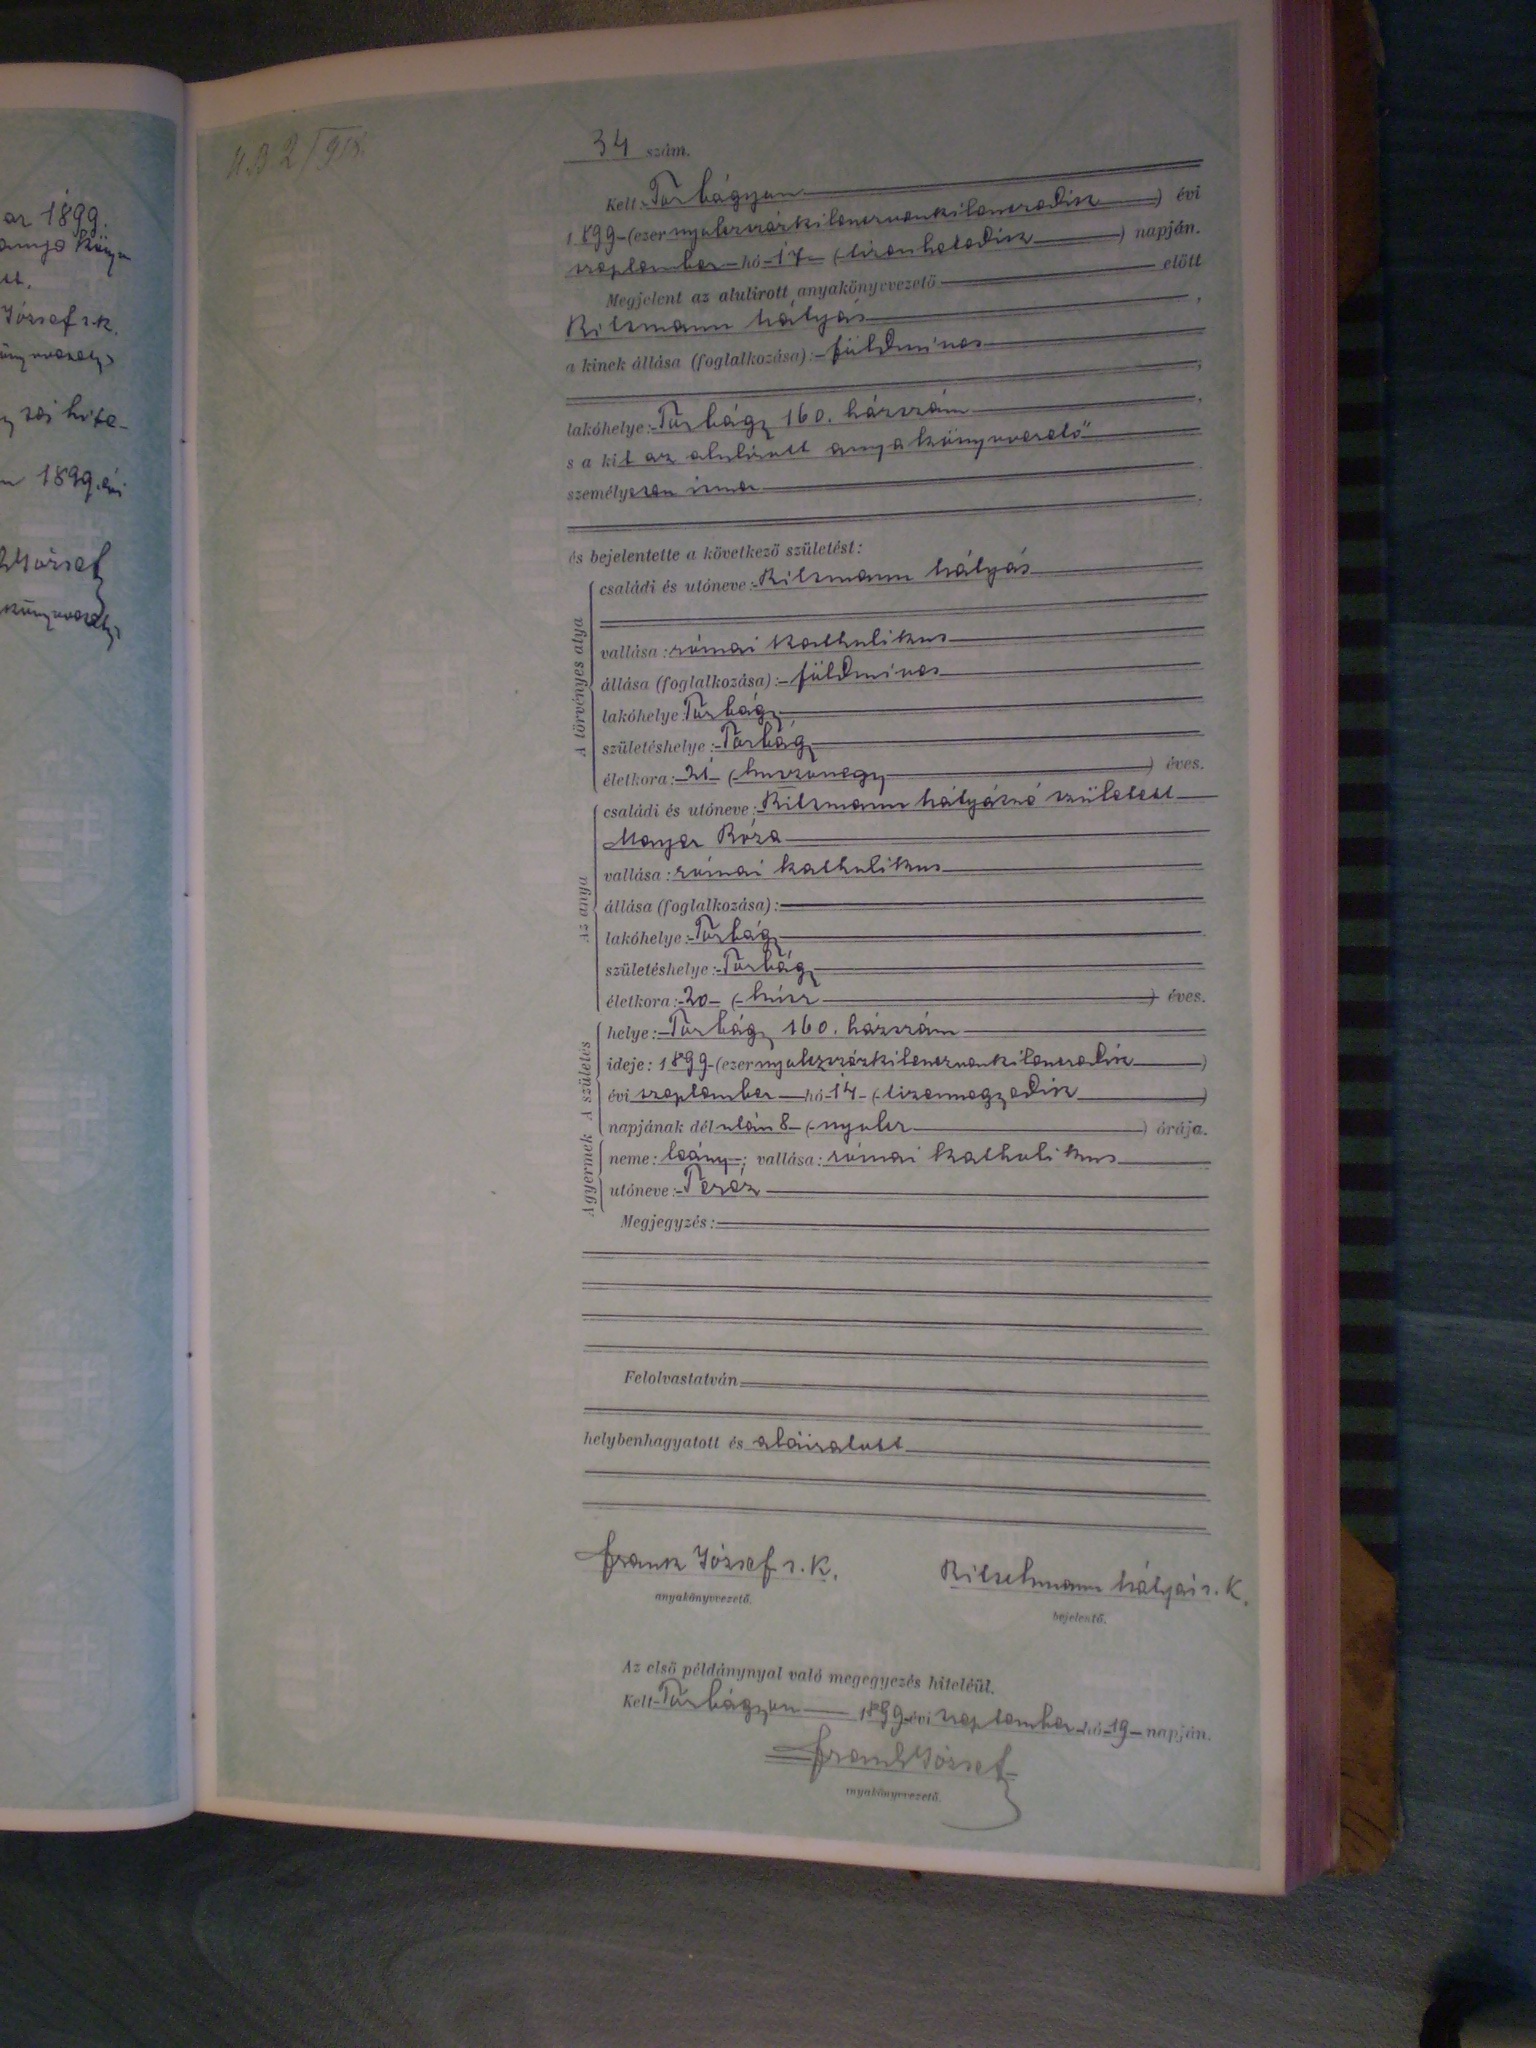 ar 1899.
József s. k.
1899. évi
József
34 szám.
Kelt: Törbágyon
1899 (ezernyolczszázkilenczvenkilenczedik) évi
szeptember hó 17 (tizenhetedik) napján.
Megjelent az alulirott anyakönyvvezető előtt
Ritzmann Mátyás,
a kinek állása (foglalkozása): földmives
lakóhelye: Törbágy 160. házszám,
s a kit az alulirott anyakönyvvezető
személyesen ismer.
és bejelentette a következő születést:
A törvényes atya
családi és utóneve: Ritzmann Mátyás
vallása: római katholikus
állása (foglalkozása): földmives
lakóhelye Törbágy
születéshelye: Törbágy
életkora: 21 (huszonegy) éves.
Az anya
családi és utóneve: Ritzmann Mátyásné született
Mayer Róza
vallása: római katholikus
állása (foglalkozása):
lakóhelye: Törbágy
születéshelye: Törbágy
életkora: 20 (húsz) éves.
A születés
helye: Törbágy 160. házszám
ideje: 1899 (ezernyolczszázkilenczvenkilenczedik)
évi szeptember hó 14 (tizennegyedik)
napjának délután 8 (nyolcz) órája.
A gyermek
neme: leány; vallása: római katholikus
utóneve: Teréz
Megjegyzés:
Felolvastatván
helybenhagyatott és aláiratott
Frank József s. k.
anyakönyvvezető.
Ritschmann Mátyás s. k.
bejelentő.
Az első példánynyal való megegyezés hiteléül.
Kelt Törbágyon 1899 évi szeptember hó 19 napján.
Frank József
anyakönyvvezető.